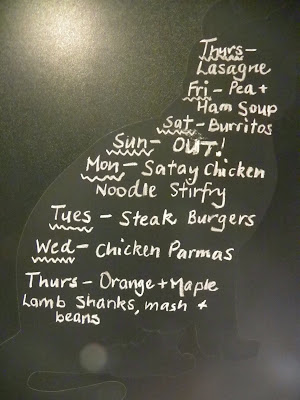 Thurs-
Lasagne
Fri - Pea +
Ham Soup
Sat - Burritos
Sun - OUT!
Mon - Satay Chicken
Noodle Stirfry
Tues - Steak Burgers
Wed - Chicken Parmas
Thurs - Orange + Maple
Lamb Shanks, mash +
beans